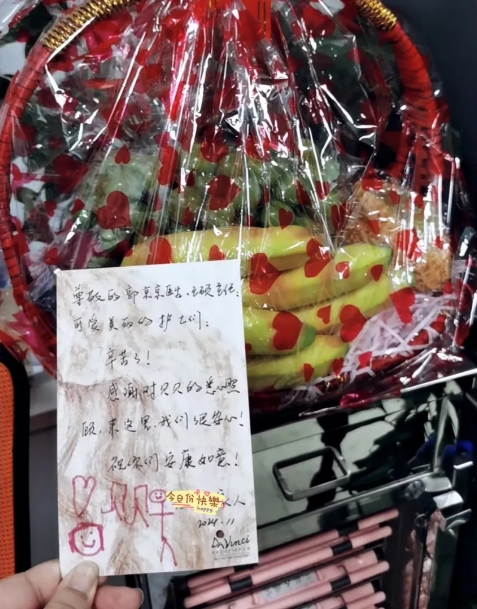 尊敬的郭京京医生、硕主任:
可爱美丽的护士们:
辛苦了!
感谢对贝贝的悉心照
顾,来这里,我们很安心!
祝你们安康如意!
贝贝
今日份快樂
happy
家人
2024.11
DaVinci